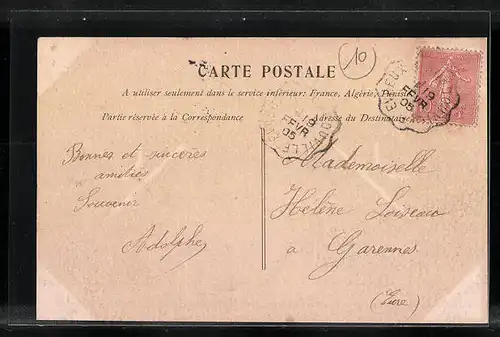 10
CARTE POSTALE
A utiliser seulement dans le service intérieur: France, Algérie, Tunisie
Partie réservée à la Correspondance
Adresse du Destinataire
19
FEVR
05
19
FEVR
05
Bonnes et sincères
amitiés
Souvenir
Adolphe
Mademoiselle
Hélène Loiseau
à Garennes
(Eure)